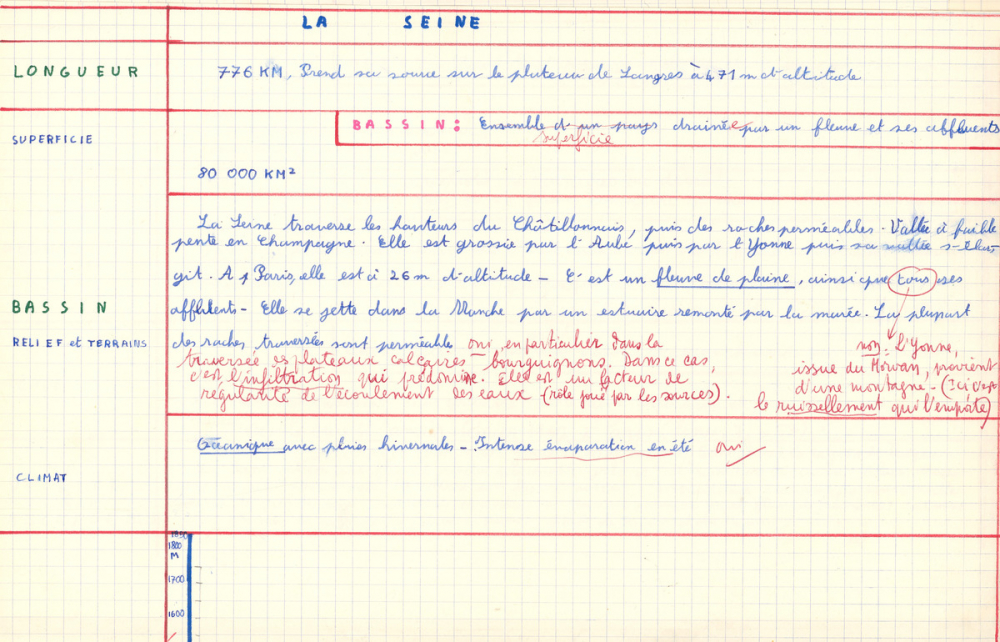 LA SEINE
LONGUEUR
776 KM, Prend sa source sur le plateau de Langres à 471 m d'altitude
BASSIN: Ensemble d'un pays drainée par un fleuve et ses affluents
superficie
SUPERFICIE
80 000 KM²
La Seine traverse les hauteurs du Châtillonnais, puis des roches perméables. Vallée à faible
pente en Champagne. Elle est grossie par l'Aube puis par l'Yonne puis sa vallée s'élar
git. A Paris, elle est à 26 m d'altitude - C'est un fleuve de plaine, ainsi que tous ses
BASSIN
affluents - Elle se jette dans la Manche par un estuaire remonté par la marée. La plupart
RELIEF et TERRAINS
des roches traversées sont perméables oui, en particulier dans la
traversée des plateaux calcaires bourguignons. Dans ce cas,
c'est l'infiltration qui prédomine. Elle est un facteur de
régularité de l'écoulement des eaux (rôle joué par les sources).
non: l'Yonne,
issue du Morvan, provient
d'une montagne - (Ici c'est
le ruissellement qui l'emporte)
Océanique avec pluies hivernales - Intense évaporation en été oui
CLIMAT
1850
1800
M
1700
1600